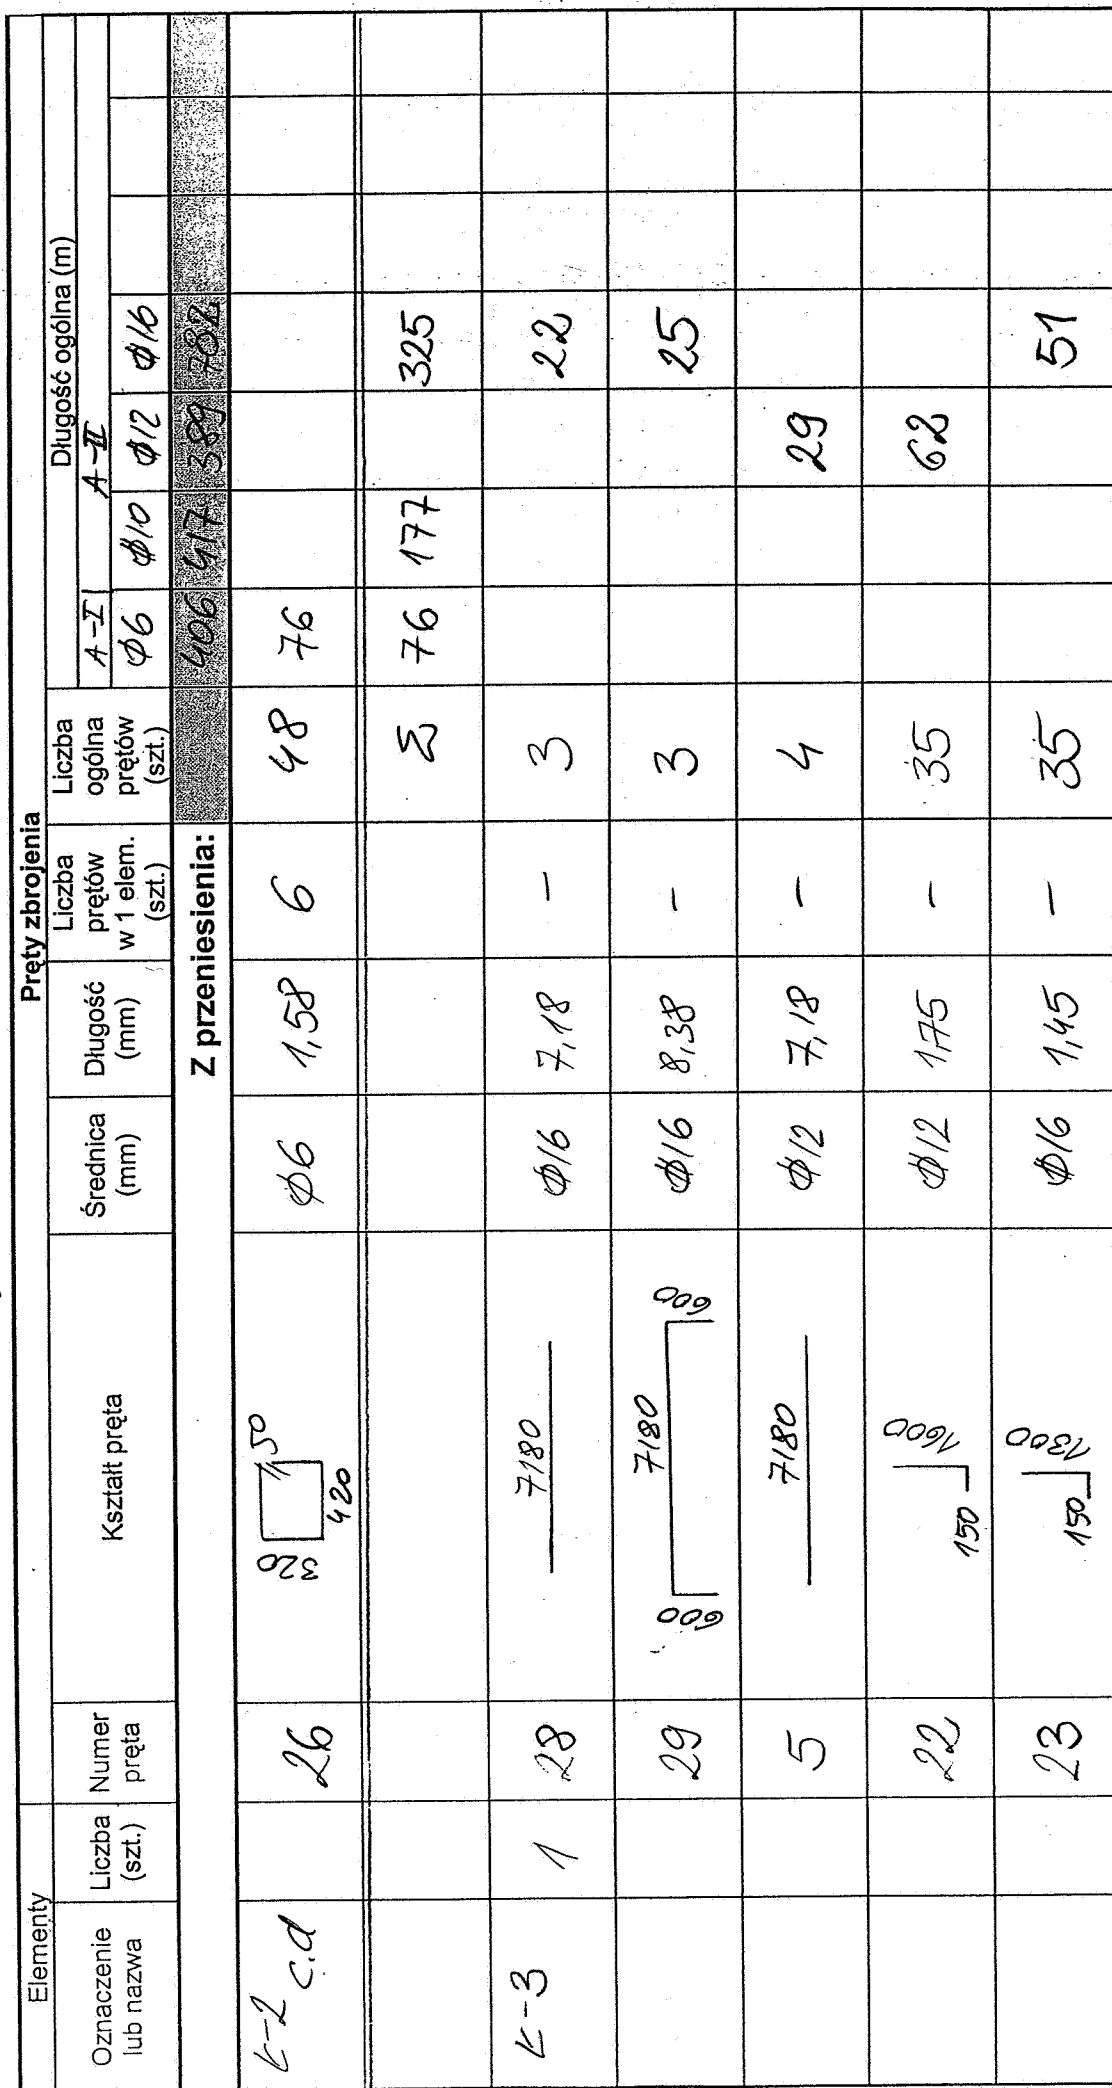 Elementy
Pręty zbrojenia
Oznaczenie lub nazwa
Liczba (szt.)
Numer pręta
Kształt pręta
Średnica (mm)
Długość (mm)
Liczba prętów w 1 elem. (szt.)
Liczba ogólna prętów (szt.)
Długość ogólna (m)
A-I A-II
Φ6 Φ10 Φ12 Φ16
Z przeniesienia: 406 417 389 782
K-2 c.d 26 320 420 50 Φ6 1,58 6 48 76
Σ 76 177 325
K-3 1 28 7180 Φ16 7,18 - 3 22
29 600 7180 600 Φ16 8,38 - 3 25
5 7180 Φ12 7,18 - 4 29
22 150 1600 Φ12 1,75 - 35 62
23 150 1300 Φ16 1,45 - 35 51